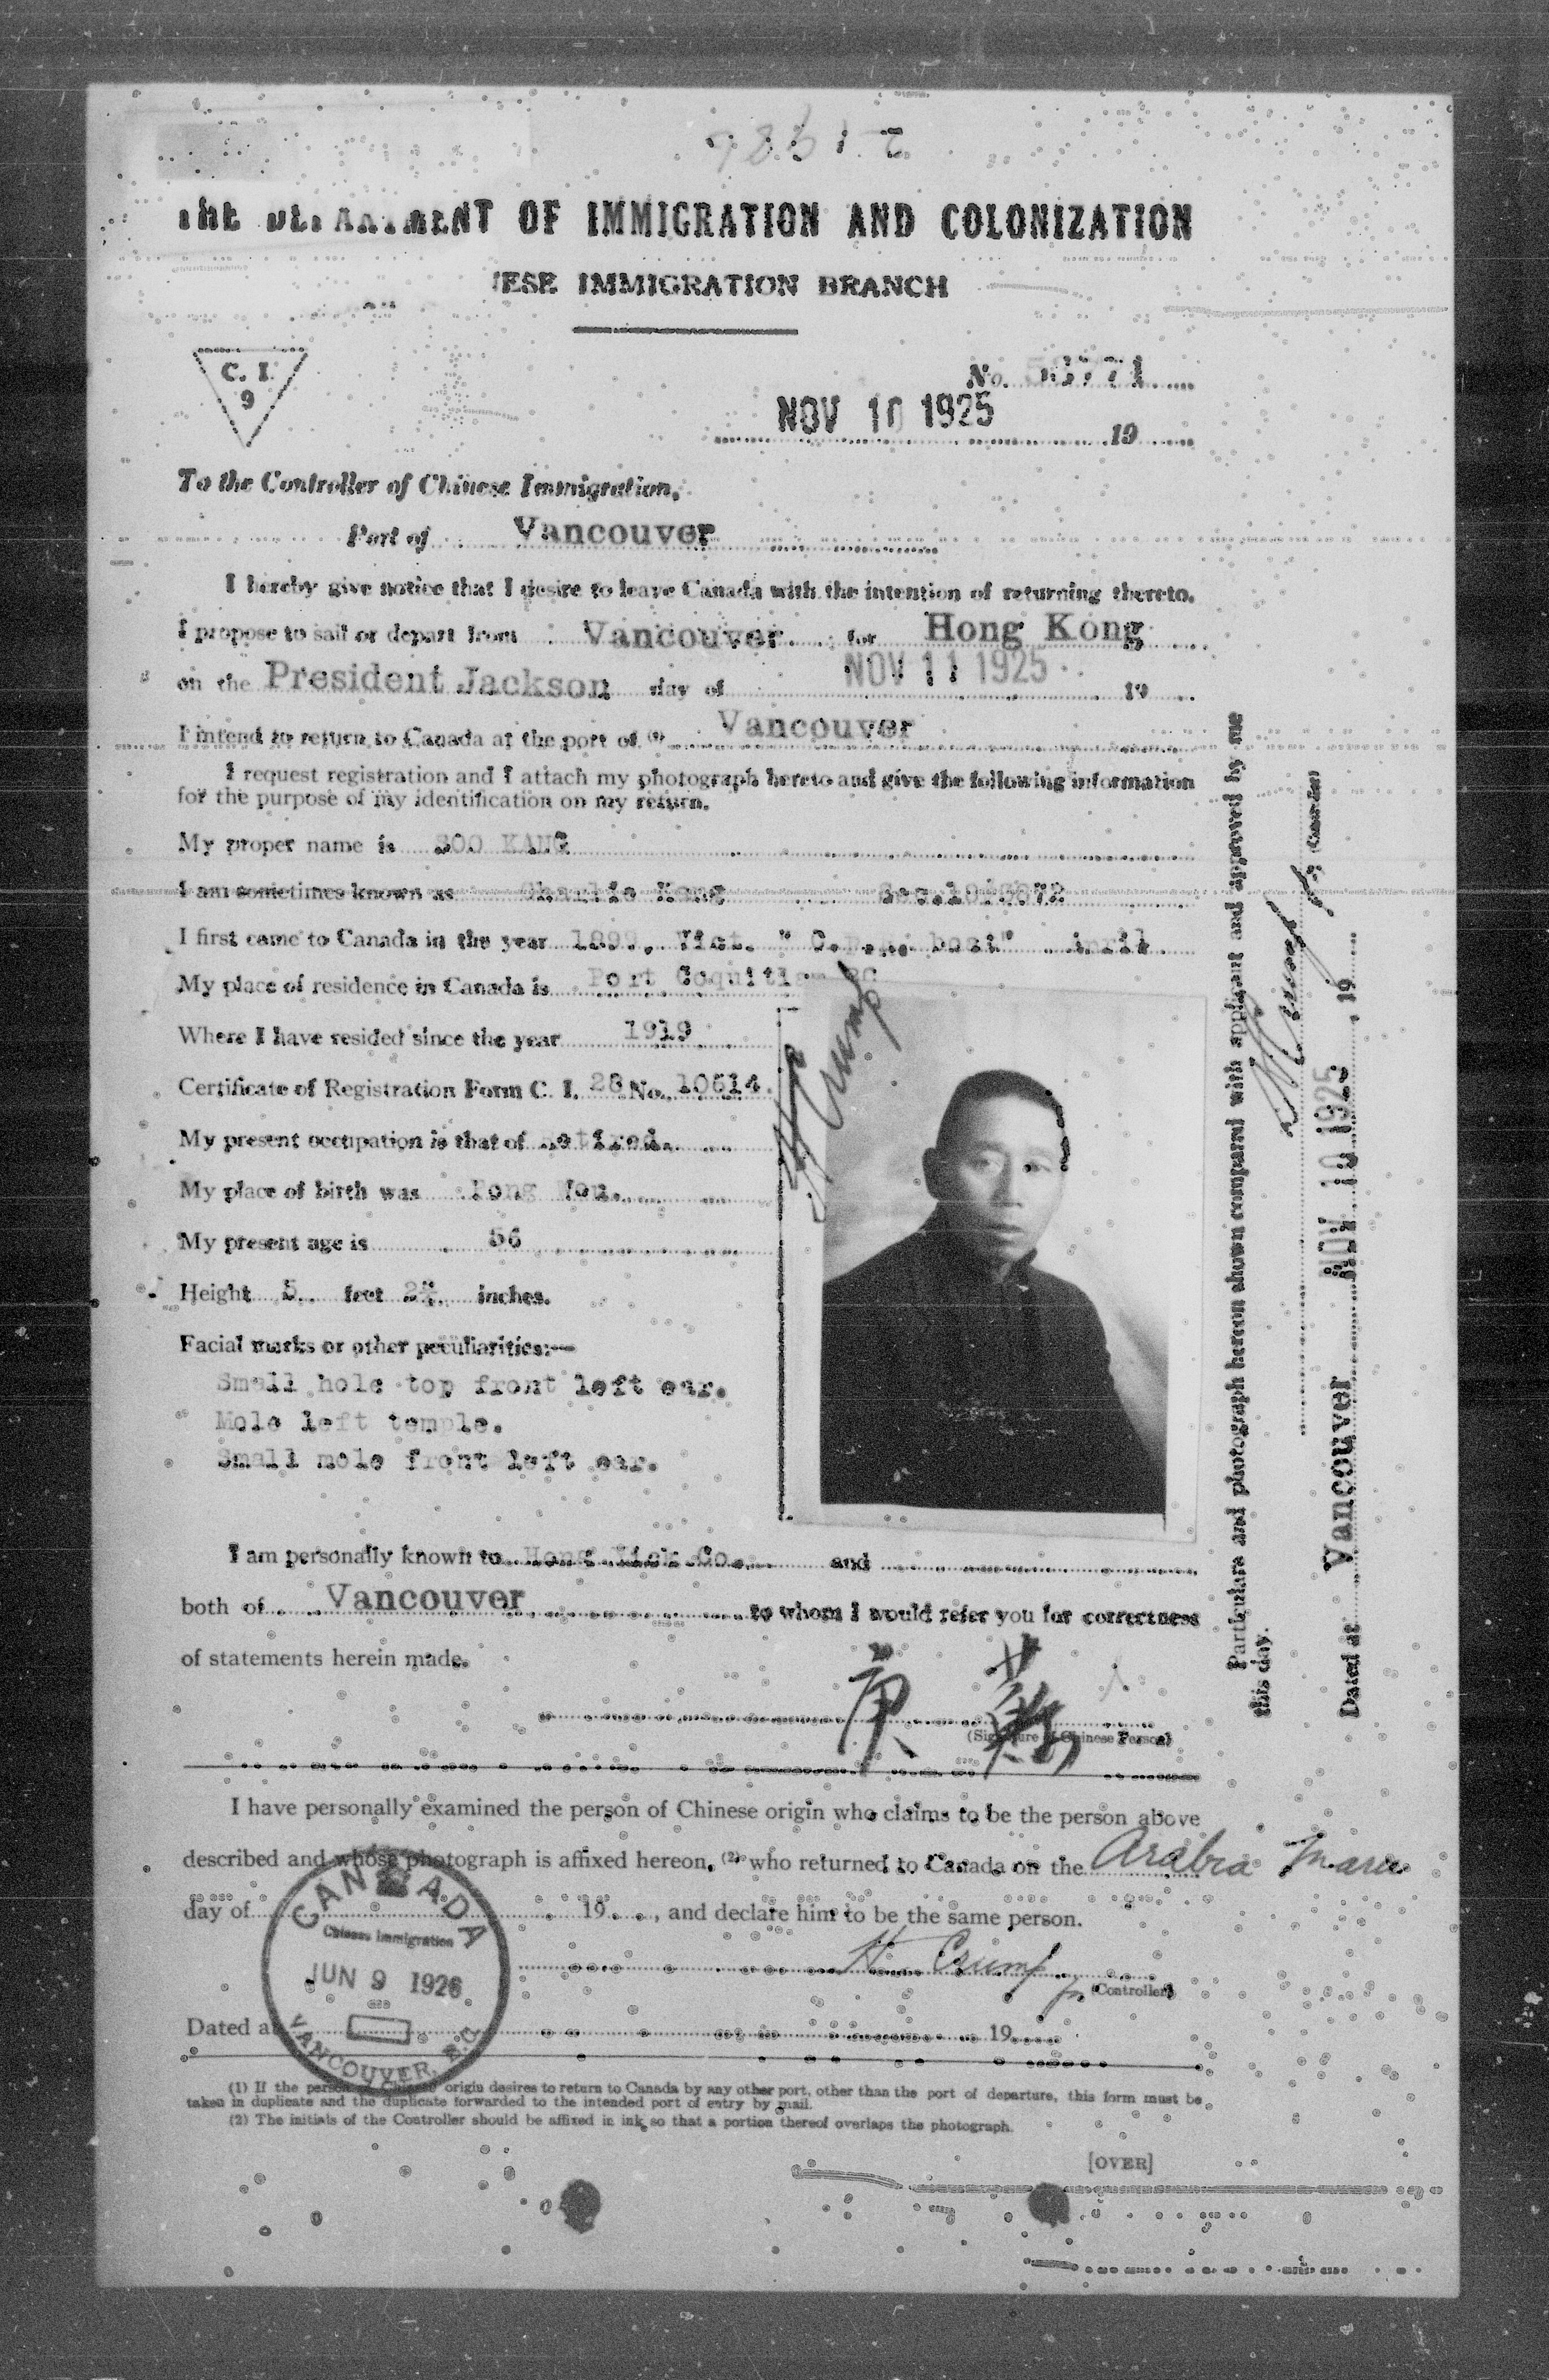 THE DEPARTMENT OF IMMIGRATION AND COLONIZATION
IESE IMMIGRATION BRANCH
C. I.
9
No. 771
NOV 10 1925 19
To the Controller of Chinese Immigration,
Port of Vancouver
I hereby give notice that I desire to leave Canada with the intention of returning thereto.
I propose to sail or depart from Vancouver for Hong Kong
on the President Jackson day of NOV 11 1925 19
I intend to return to Canada at the port of (1) Vancouver
I request registration and I attach my photograph hereto and give the following information
for the purpose of my identification on my return.
My proper name is SOO KANG
I am sometimes known as Charlie Kang
I first came to Canada in the year 1899, Vict. " boat" April
My place of residence in Canada is Port Coquitlam BC
Where I have resided since the year 1919
Certificate of Registration Form C. I. 28 No. 10614
My present occupation is that of Retired.
My place of birth was
My present age is 56
Height 5 feet inches.
Facial marks or other peculiarities:—
Small hole top front left ear.
Mole left temple.
Small mole front left ear.
H Crump
I am personally known to Co. and
both of Vancouver to whom I would refer you for correctness
of statements herein made.
(Signature of Chinese Person)
I have personally examined the person of Chinese origin who claims to be the person above
described and whose photograph is affixed hereon, (2) who returned to Canada on the Arabia Maru
day of 19 , and declare him to be the same person.
H Crump
(Controller)
Dated at 19
CANADA
Chinese Immigration
JUN 9 1926
VANCOUVER, B.C.
(1) If the person of Chinese origin desires to return to Canada by any other port, other than the port of departure, this form must be
taken in duplicate and the duplicate forwarded to the intended port of entry by mail.
(2) The initials of the Controller should be affixed in ink so that a portion thereof overlaps the photograph.
[OVER]
Particulars and photograph hereon shown compared with applicant and approved by me
this day.
H Crump Controller
Dated at Vancouver NOV 10 1925, 19